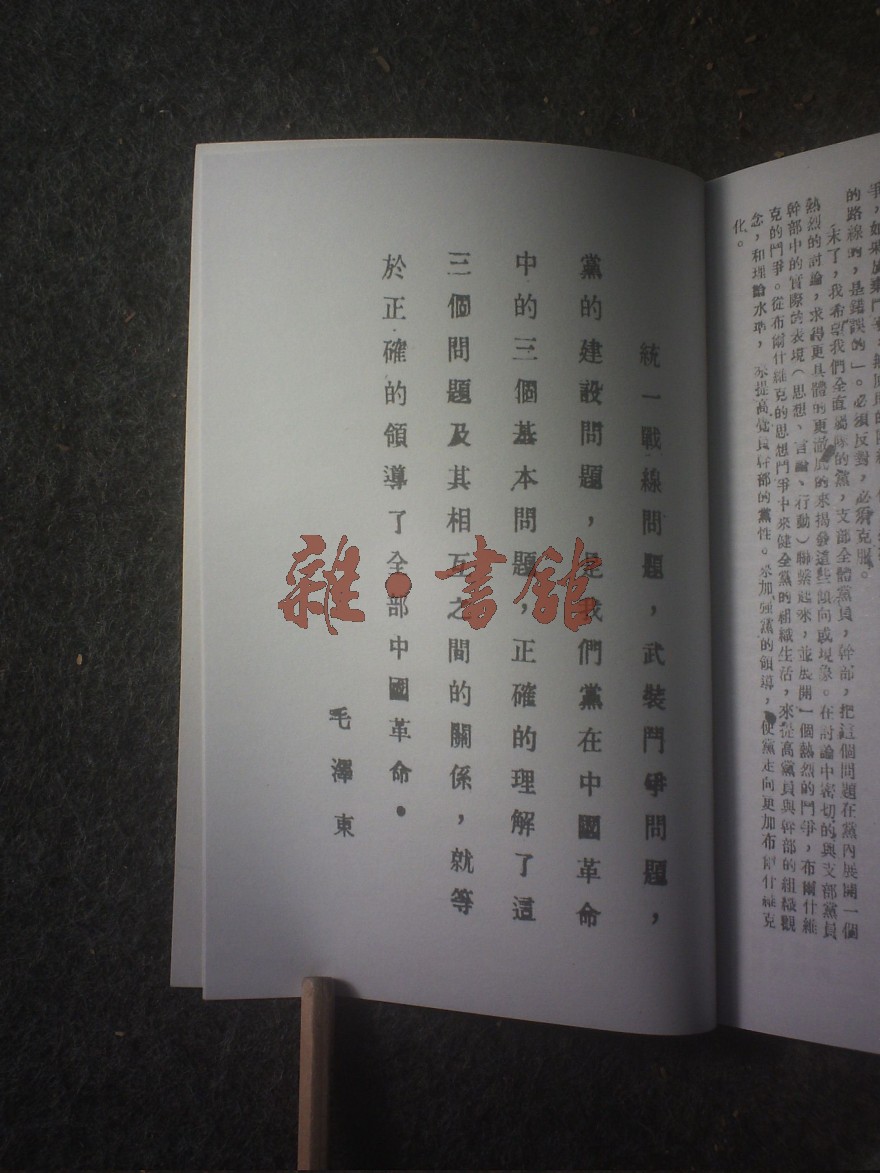 的路線的，是錯誤的」。必須反對，必須克服。
末了，我希望我們全直屬隊的黨，支部全體黨員，幹部，把這個問題在黨內展開一個
熱烈的討論，求得更具體的更澈底的來揭發這些傾向或現象。在討論中密切的與支部黨員
幹部中的實際的表現（思想、言論、行動）聯繫起來，並展開一個熱烈的鬥爭，布爾什維
克的鬥爭。從布爾什維克的思想鬥爭中來健全黨的組織生活，來提高黨員與幹部的組織觀
念，和理論水準，來提高黨員幹部的黨性。來加強黨的領導，使黨走向更加布爾什維克
化。
統一戰線問題，武裝鬥爭問題，
黨的建設問題，是我們黨在中國革命
中的三個基本問題，正確的理解了這
三個問題及其相互之間的關係，就等
於正確的領導了全部中國革命。
毛澤東
雜·書館